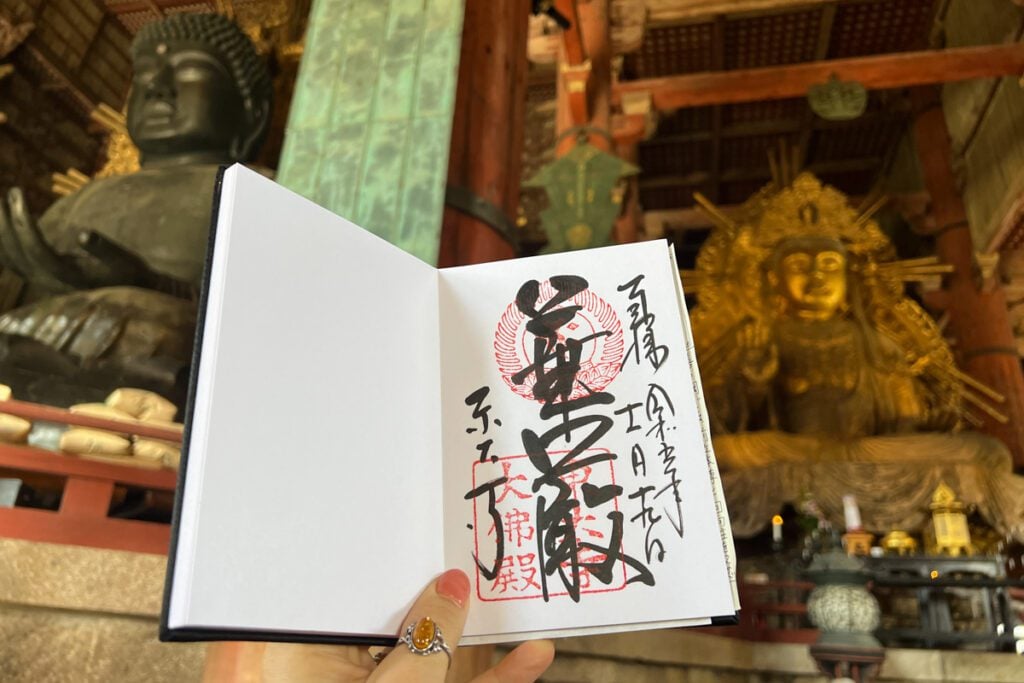 奉拝
令和五年
十一月十九日
華嚴
東大寺
大佛殿